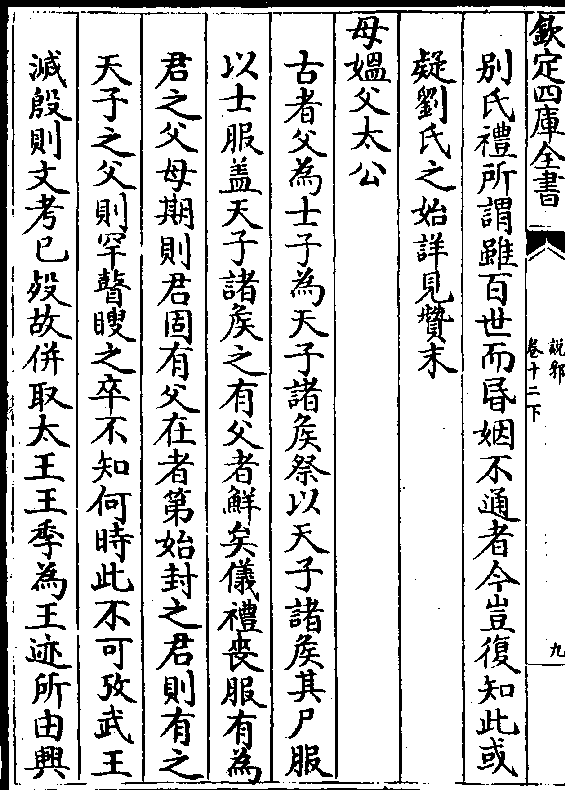 欽定四庫全書
說郛
卷十二下
九
別氏禮所謂雖百世而昏姻不通者今豈復知此或
疑劉氏之始詳見贊末
母媼父太公
古者父為士子為天子諸矦祭以天子諸矦其尸服
以士服盖天子諸矦之有父者鮮矣儀禮喪服有為
君之父母期則君固有父在者第始封之君則有之
天子之父則罕瞽瞍之卒不知何時此不可攷武王
滅殷則文考已殁故併取太王王季為王迹所由興